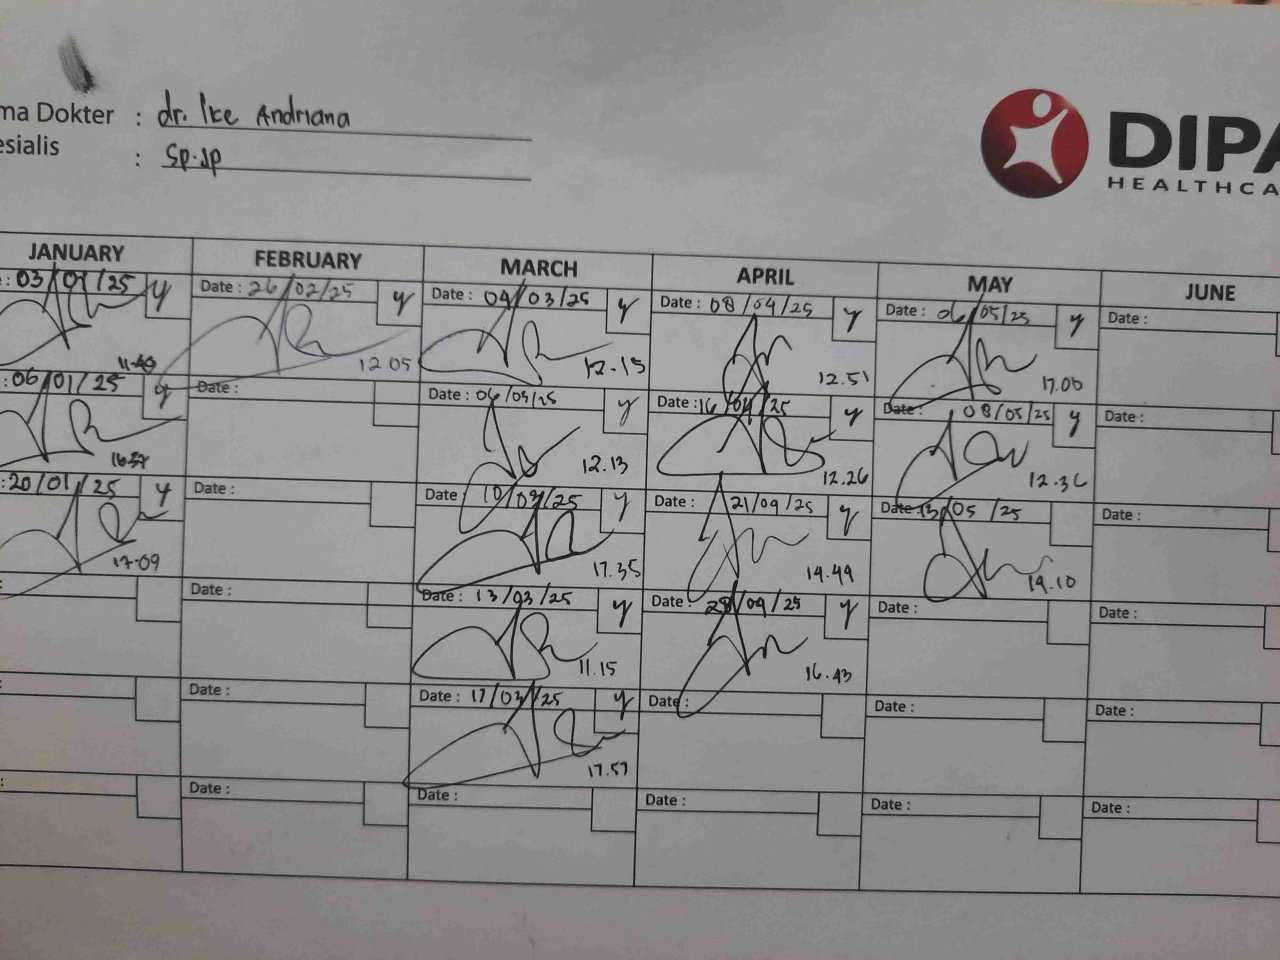 ma Dokter : dr. Ike Andriana
esialis : Sp.Jp
DIPA
HEALTHCA
JANUARY FEBRUARY MARCH APRIL MAY JUNE
: 03/01/25 y Date : 26/02/25 y Date : 04/03/25 y Date : 08/04/25 y Date : 06/05/25 y Date :
12.05 12.15 12.51 17.00
: 06/01/25 y Date : Date : 06/03/25 y Date : 16/04/25 y Date : 08/05/25 y Date :
16.37 12.13 12.26 12.36
: 20/01/25 y Date : Date : 10/03/25 y Date : 21/04/25 y Date : 13/05/25 Date :
17.09 17.35 14.49 14.10
: Date : Date : 13/03/25 y Date : 28/04/25 y Date : Date :
11.15 16.43
: Date : Date : 17/03/25 y Date : Date : Date :
17.57
: Date : Date : Date : Date : Date :